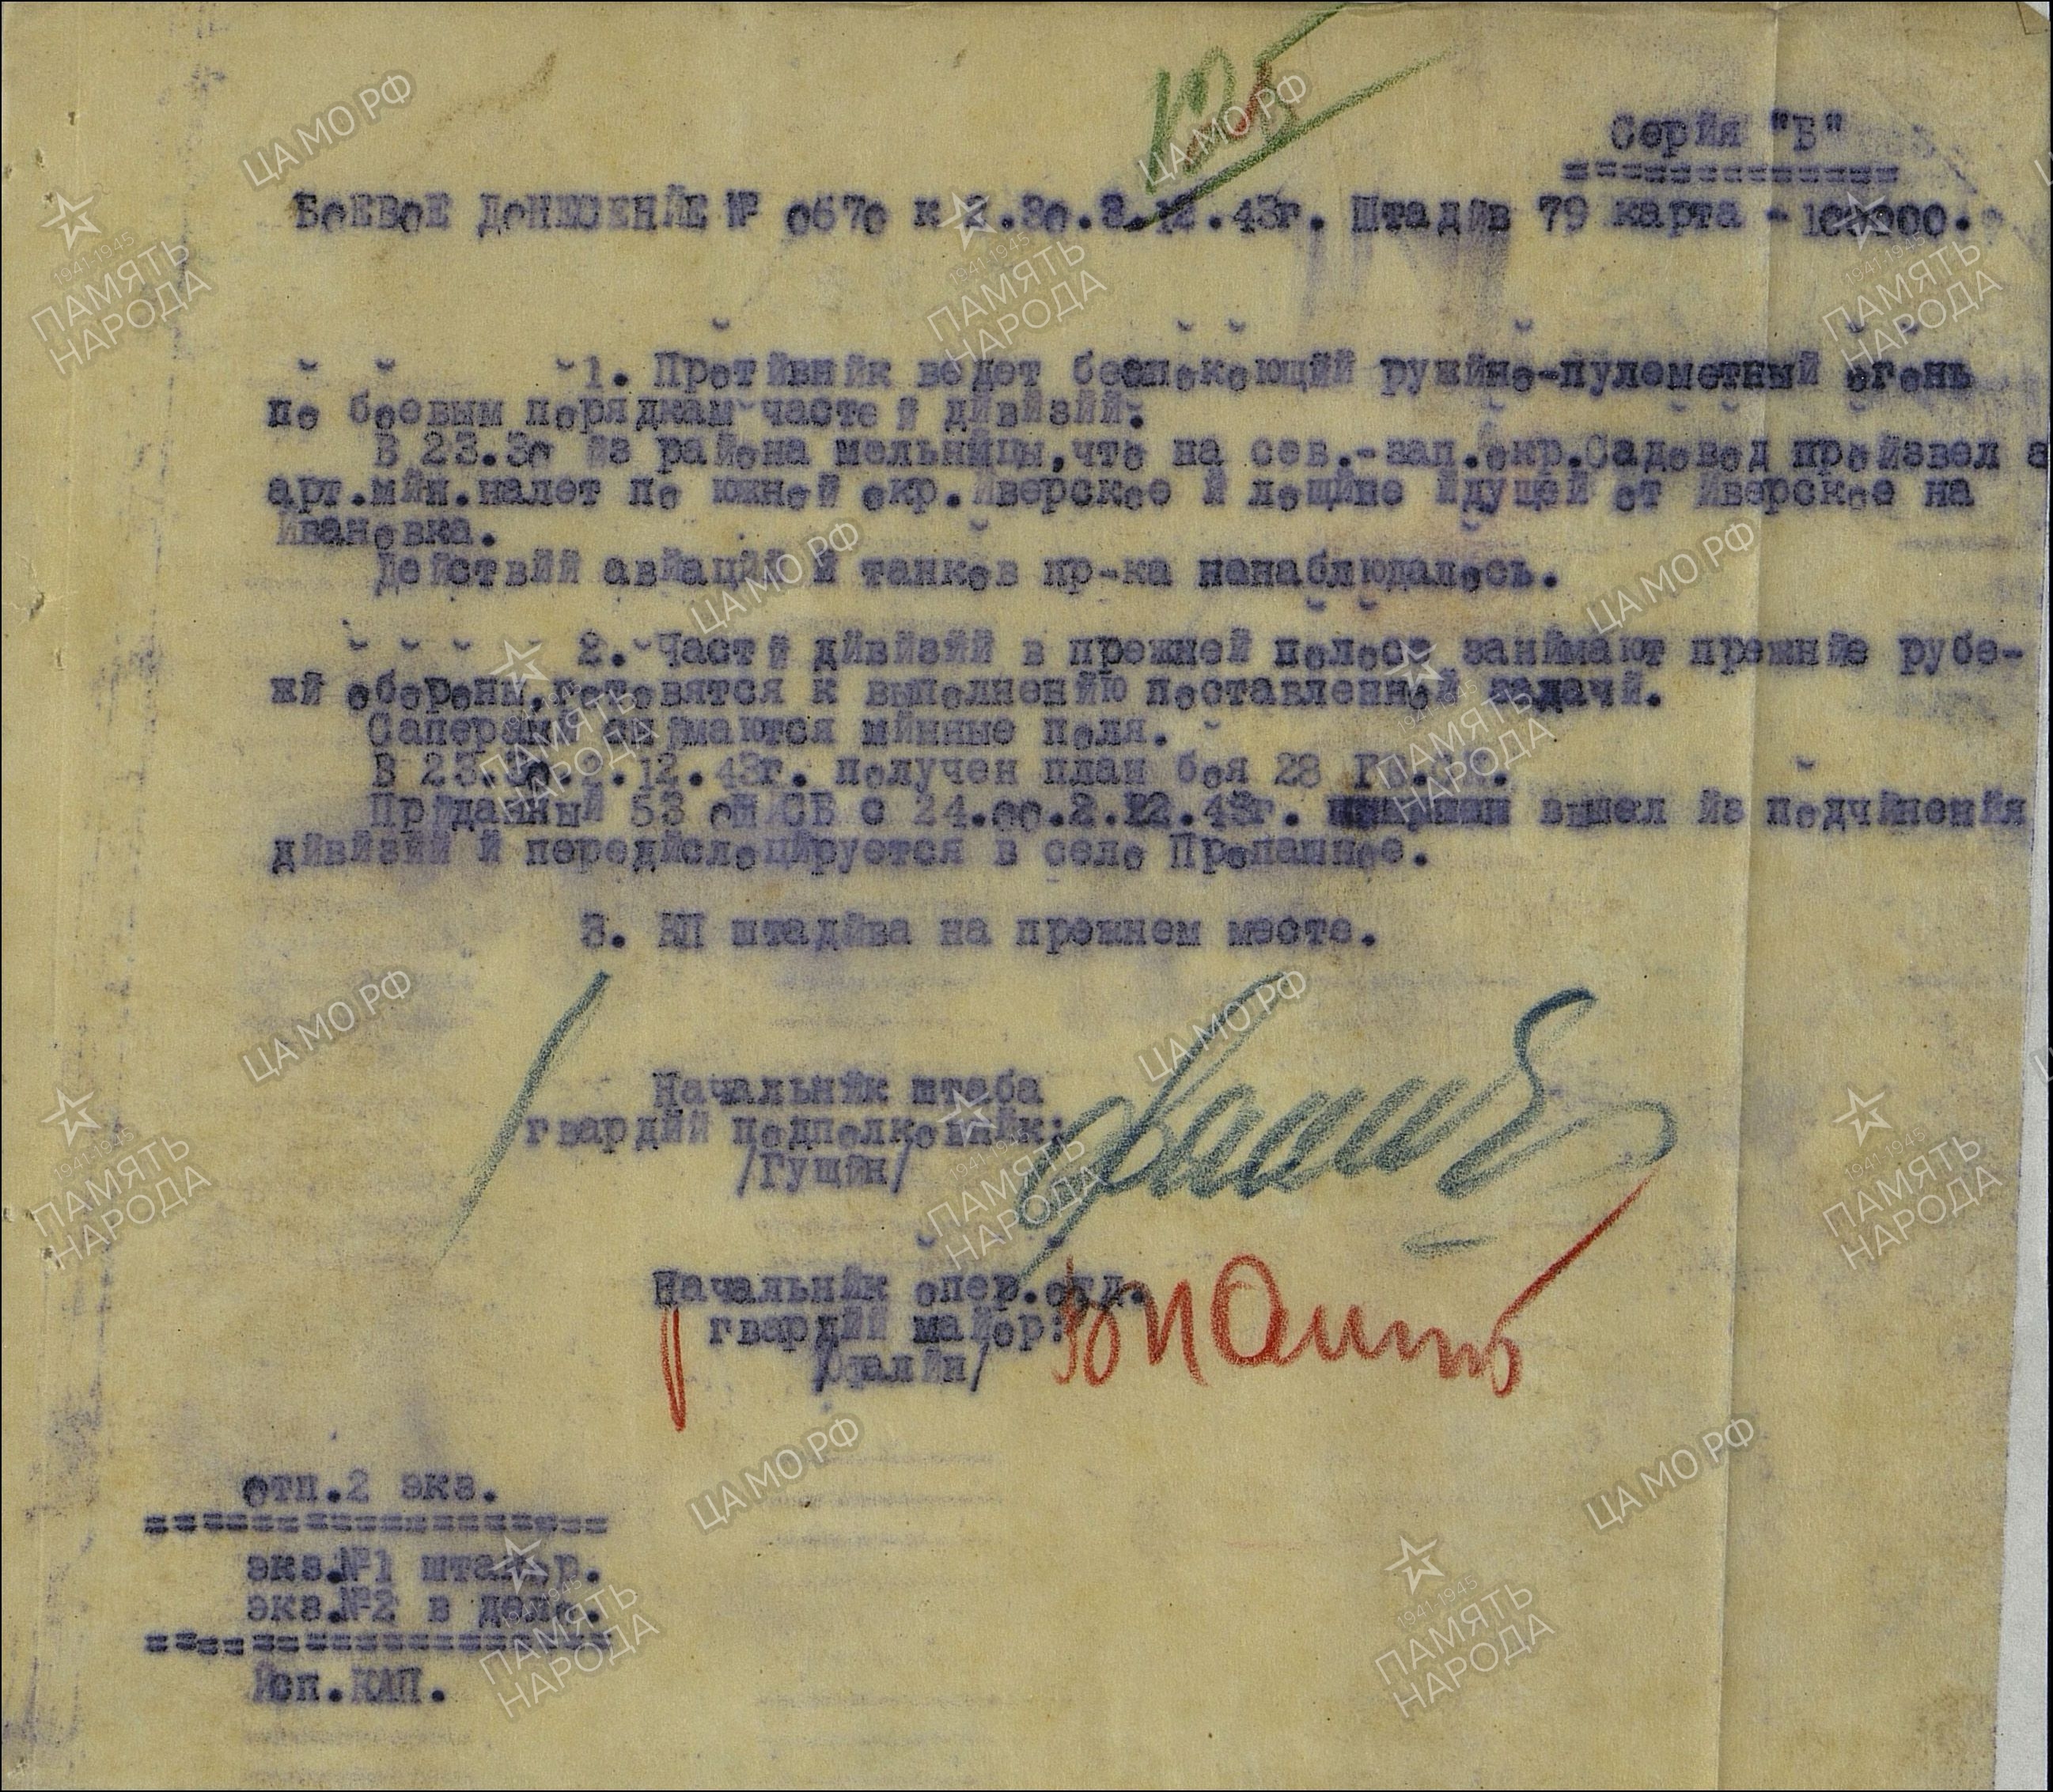 Серия "Б"
БОЕВОЕ ДОНЕСЕНИЕ № 0670 к 2.30.3.12.43г. Штадив 79 карта - 100000.
1. Противник ведет беспокоющий ружйно-пулеметный огонь
по боевым порядкам частей дивизии.
В 23.30 из района мельницы,что на сев.-зап.окр.Садовод произвел
арт.мин.налет по южной окр.Иверское и лощине идущей от Иверское на
Ивановка.
Действий авиации и танков пр-ка ненаблюдалось.
2. Части дивизии в прежней полосе занимают прежние рубе-
жи обороны,готовятся к выполнению поставленной задачи.
Саперами снимаются минные поля.
В 23.30 .12.43г. получен план боя 28 Гв.СК.
Приданный 53 СБ с 24.00.2.12.43г. вышел из подчинения
дивизии и передислоцируется в село Пропашное.
3. КП штадива на прежнем месте.
Начальник штаба
гвардии подполковник:
/Гущин/
Начальник опер.отд.
гвардии майор:
/Сталин/
отп.2 экз.
================
экз.№1 штакор.
экз.№2 в дело.
================
Исп.КАП.
ЦА МО РФ
1941-1945
ПАМЯТЬ
НАРОДА